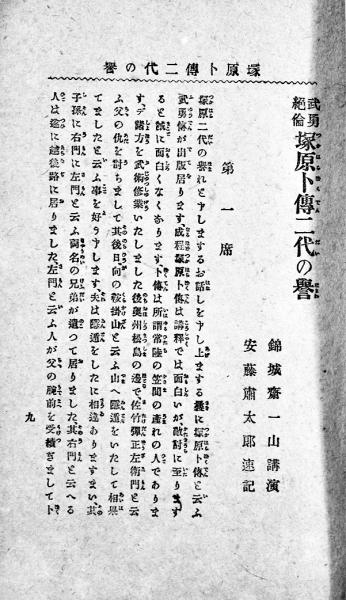 塚原卜傳二代の譽
武勇絶倫 塚原卜傳二代の譽
錦城齋一山講演
安藤肅太郎速記
第一席
塚原二代の譽れと申しまするお話しを申し上まする曩に塚原卜傳と云ふ
武勇傳が出版居ります、成程塚原卜傳は講釋では面白いが敵討に至りま
ると誠に面白くなく奈ります、卜傳は所謂常陸の笠間の產れの人でありま
す、デ諸方を武術修業いたしました後奧州松島の邊で佐竹彈正左衛門と云
ふ父の仇を討ちまして其後日向の鞍掛山と云ふ山へ隱遁をいたして相果
てましたと云ふ事を好う申します、夫は隱遁をしたに相違ありますまい、其
子孫に右門に左門と云ふ兩名の兄弟が遺つて居りました、其右門と云へる
人は遂に越後路に居りました、左門と云ふ人が父の腕前を受續ぎましてト
九